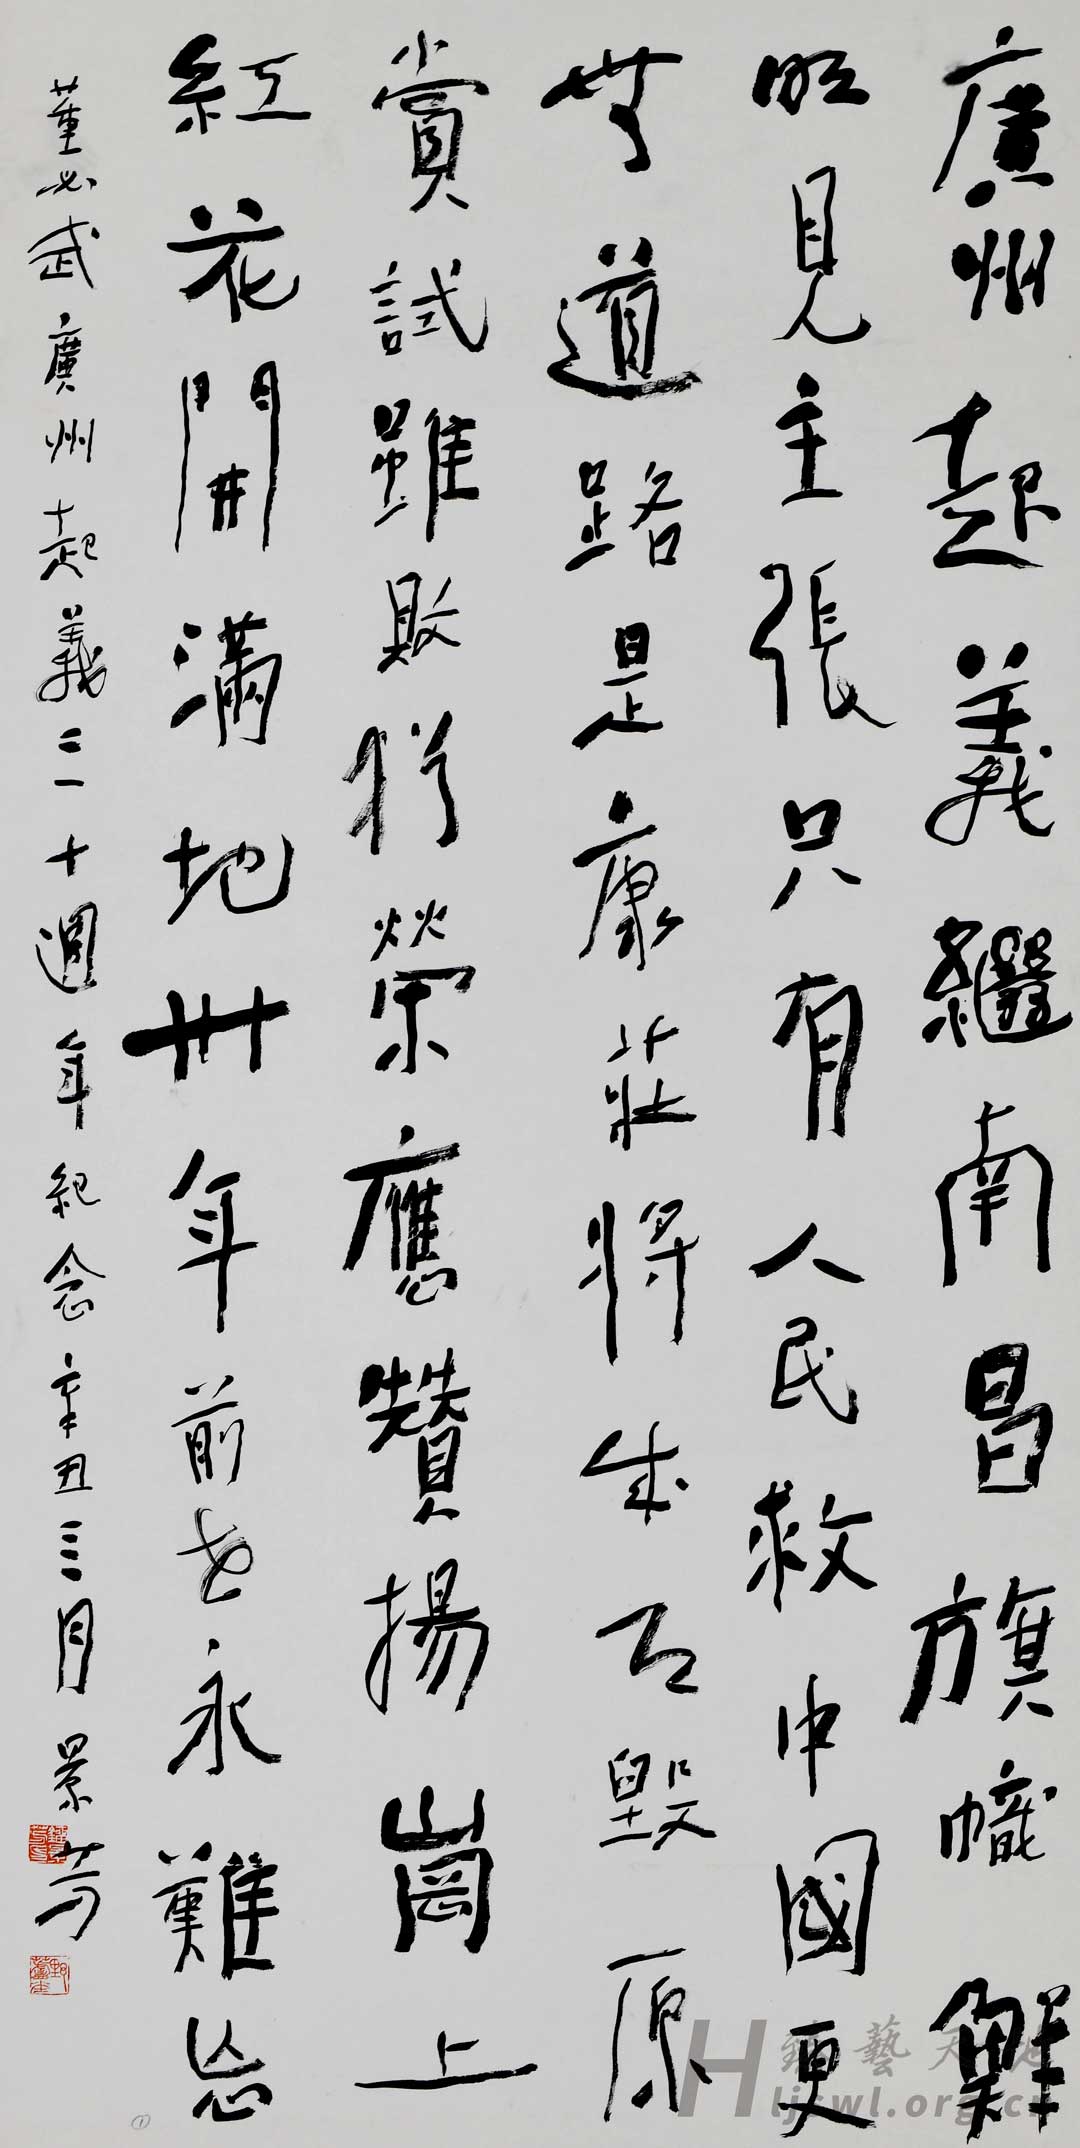 廣州起義繼南昌旗幟鮮
明見主張只有人民救中國更
無道路是康莊將成乃毀原
賞試雖敗猶榮應贊揚崗上
紅花開滿地卅年前事永難忘
董必武廣州起義三十週年紀念辛丑三月景芳
藝天
Hljswl.org.cn
①